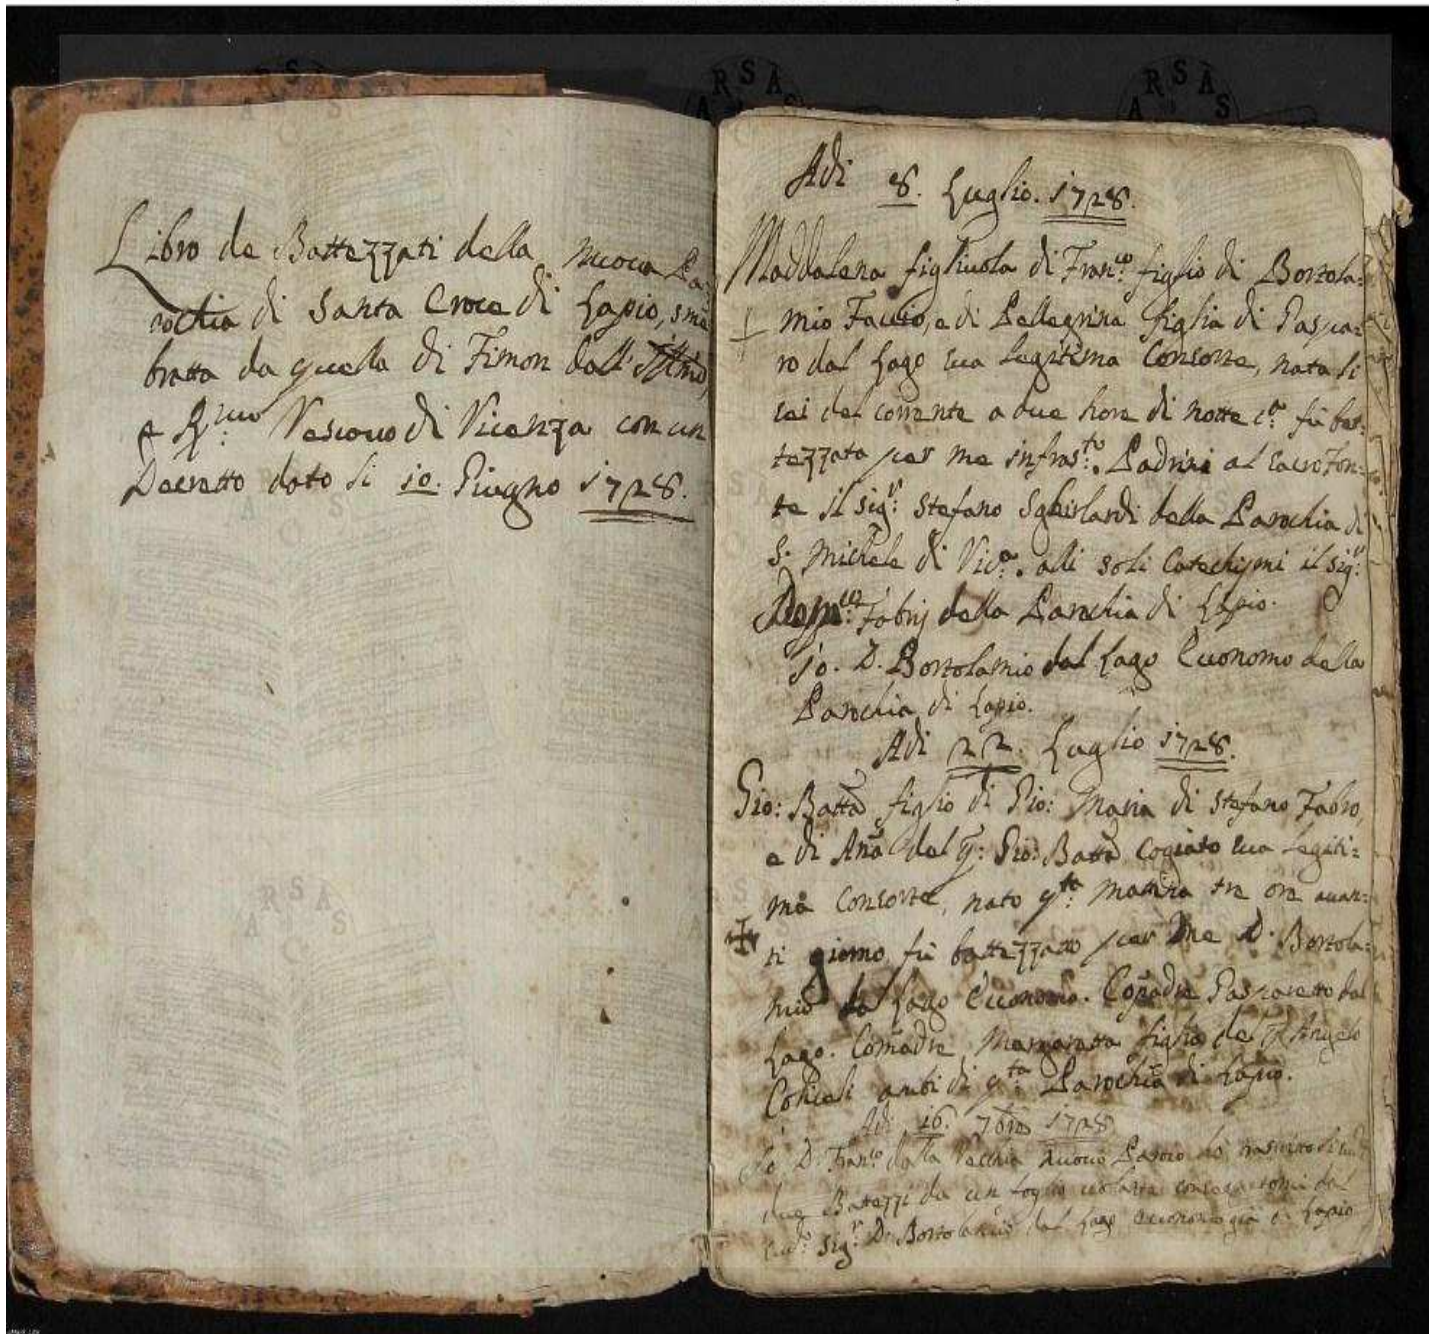 Libro de Battezzati della Nuova Pa:
rochia di Santa Croce di Lapio, smē
bratta da quella di Fimon dall'
e R.mo Vescovo di Vicenza con un
Decretto dato li 10. Giugno 1728.
Adi 8. Luglio. 1728.
Maddalena figliuola di Fran.co figlio di Bortola:
mio Faccio, e di Pellegrina figlia di Gaspa:
ro dal Lago sua legitima Consorte, nata li
sei del corrente a due hore di notte fù bat:
tezzata per me infras.to. Padrini al sacro Fon:
te il sig.r Stefano Sghirlardi della Parochia di
S. Michele di Vic.a. alli soli Catechismi il sig.r
Dom.co Fabrij della Parochia di Lapio.
Io. D. Bortolamio dal Lago Economo della
Parochia di Lapio.
Adi 22. Luglio 1728.
Gio: Battā figlio di Gio: Maria di Stefano Fabro,
e di Anā del q: Gio: Battā Cogiato sua legiti:
ma Consorte, nato q.ta mattina tre ore avan:
ti giorno fù battezzato per me D. Bortola:
mio dal Lago Economo. Copadre Gasparetto dal
Lago. Comadre Margaretta figlia del q. Angelo
ambi di q.ta Parochia di Lapio.
Adi 16. 7bre 1728
Io D. Fran.co dalla Vecchia nuovo Paroco hò trascritto li
due Battezzi da un foglio volante consegnatomi dal
Sig.r D. Bortolamio dal Lago Economo già di Lapio